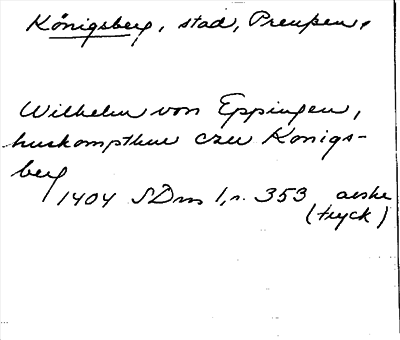 Königsberg, stad, Preußen,
Wilhelm von Eppingen,
huskompthur czu Konigs-
berg
1404 SDns 1, n. 353 avskr
(tryck)